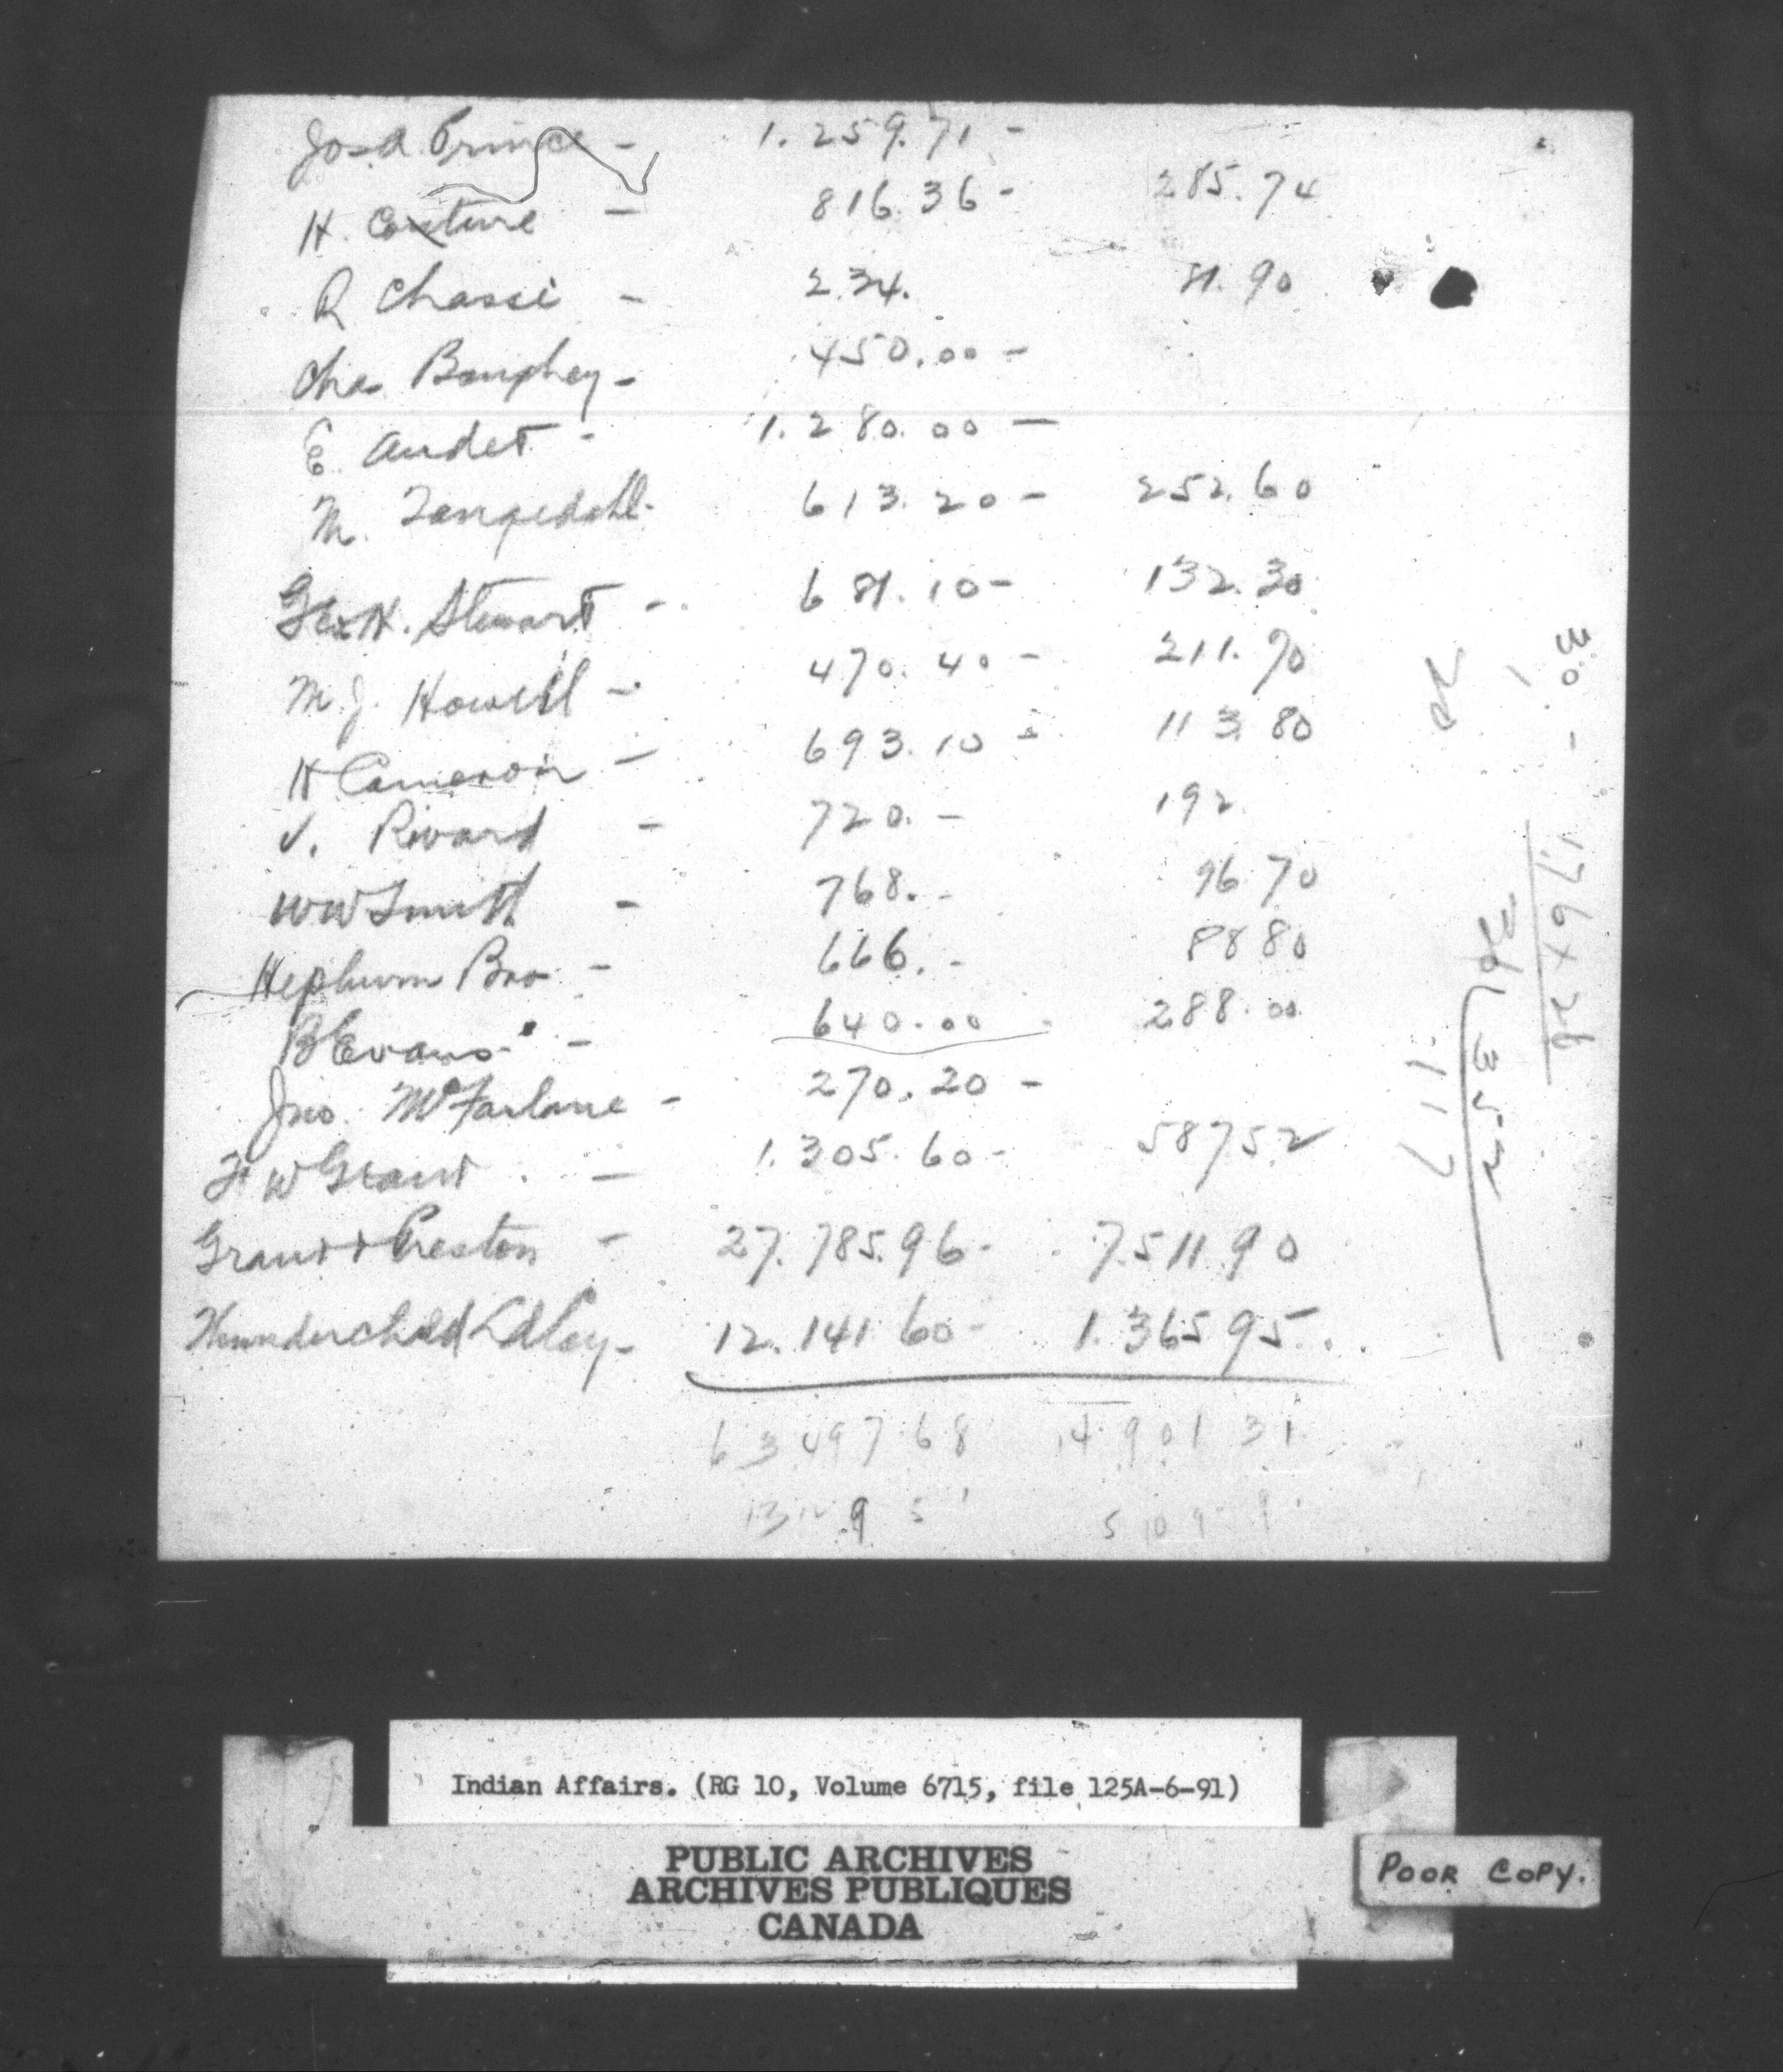 Jos. A. Prince - 1.259.71 -
H. Couture - 816.36 - 285.74
R Chassé - 234. 81.90
Chas 450.00 -
E. Audet - 1.280.00 -
M. 613.20 - 252.60
Geo H. Stewart - 681.10 - 132.30
M. J. Howell - 470.40 - 211.70
H Cameron - 693.10 - 113.80
V. Rivard - 720. - 192
WW Smith - 768. - 96 70
Hepburn Bro - 666. - 88 80
B Evans - 640.00 288.00
Jno. McFarlane - 270.20 -
F W Grant - 1.305.60 - 587 52
Grant + Preston - 27.785.96 - 7.511.90
Thunderchild Ldley - 12.141 60 - 1.365 95
63 497 68 14.901 31
30. -
1.76 x 26
352
117
Indian Affairs. (RG 10, Volume 6715, file 125A-6-91)
PUBLIC ARCHIVES
ARCHIVES PUBLIQUES
CANADA
POOR COPY.